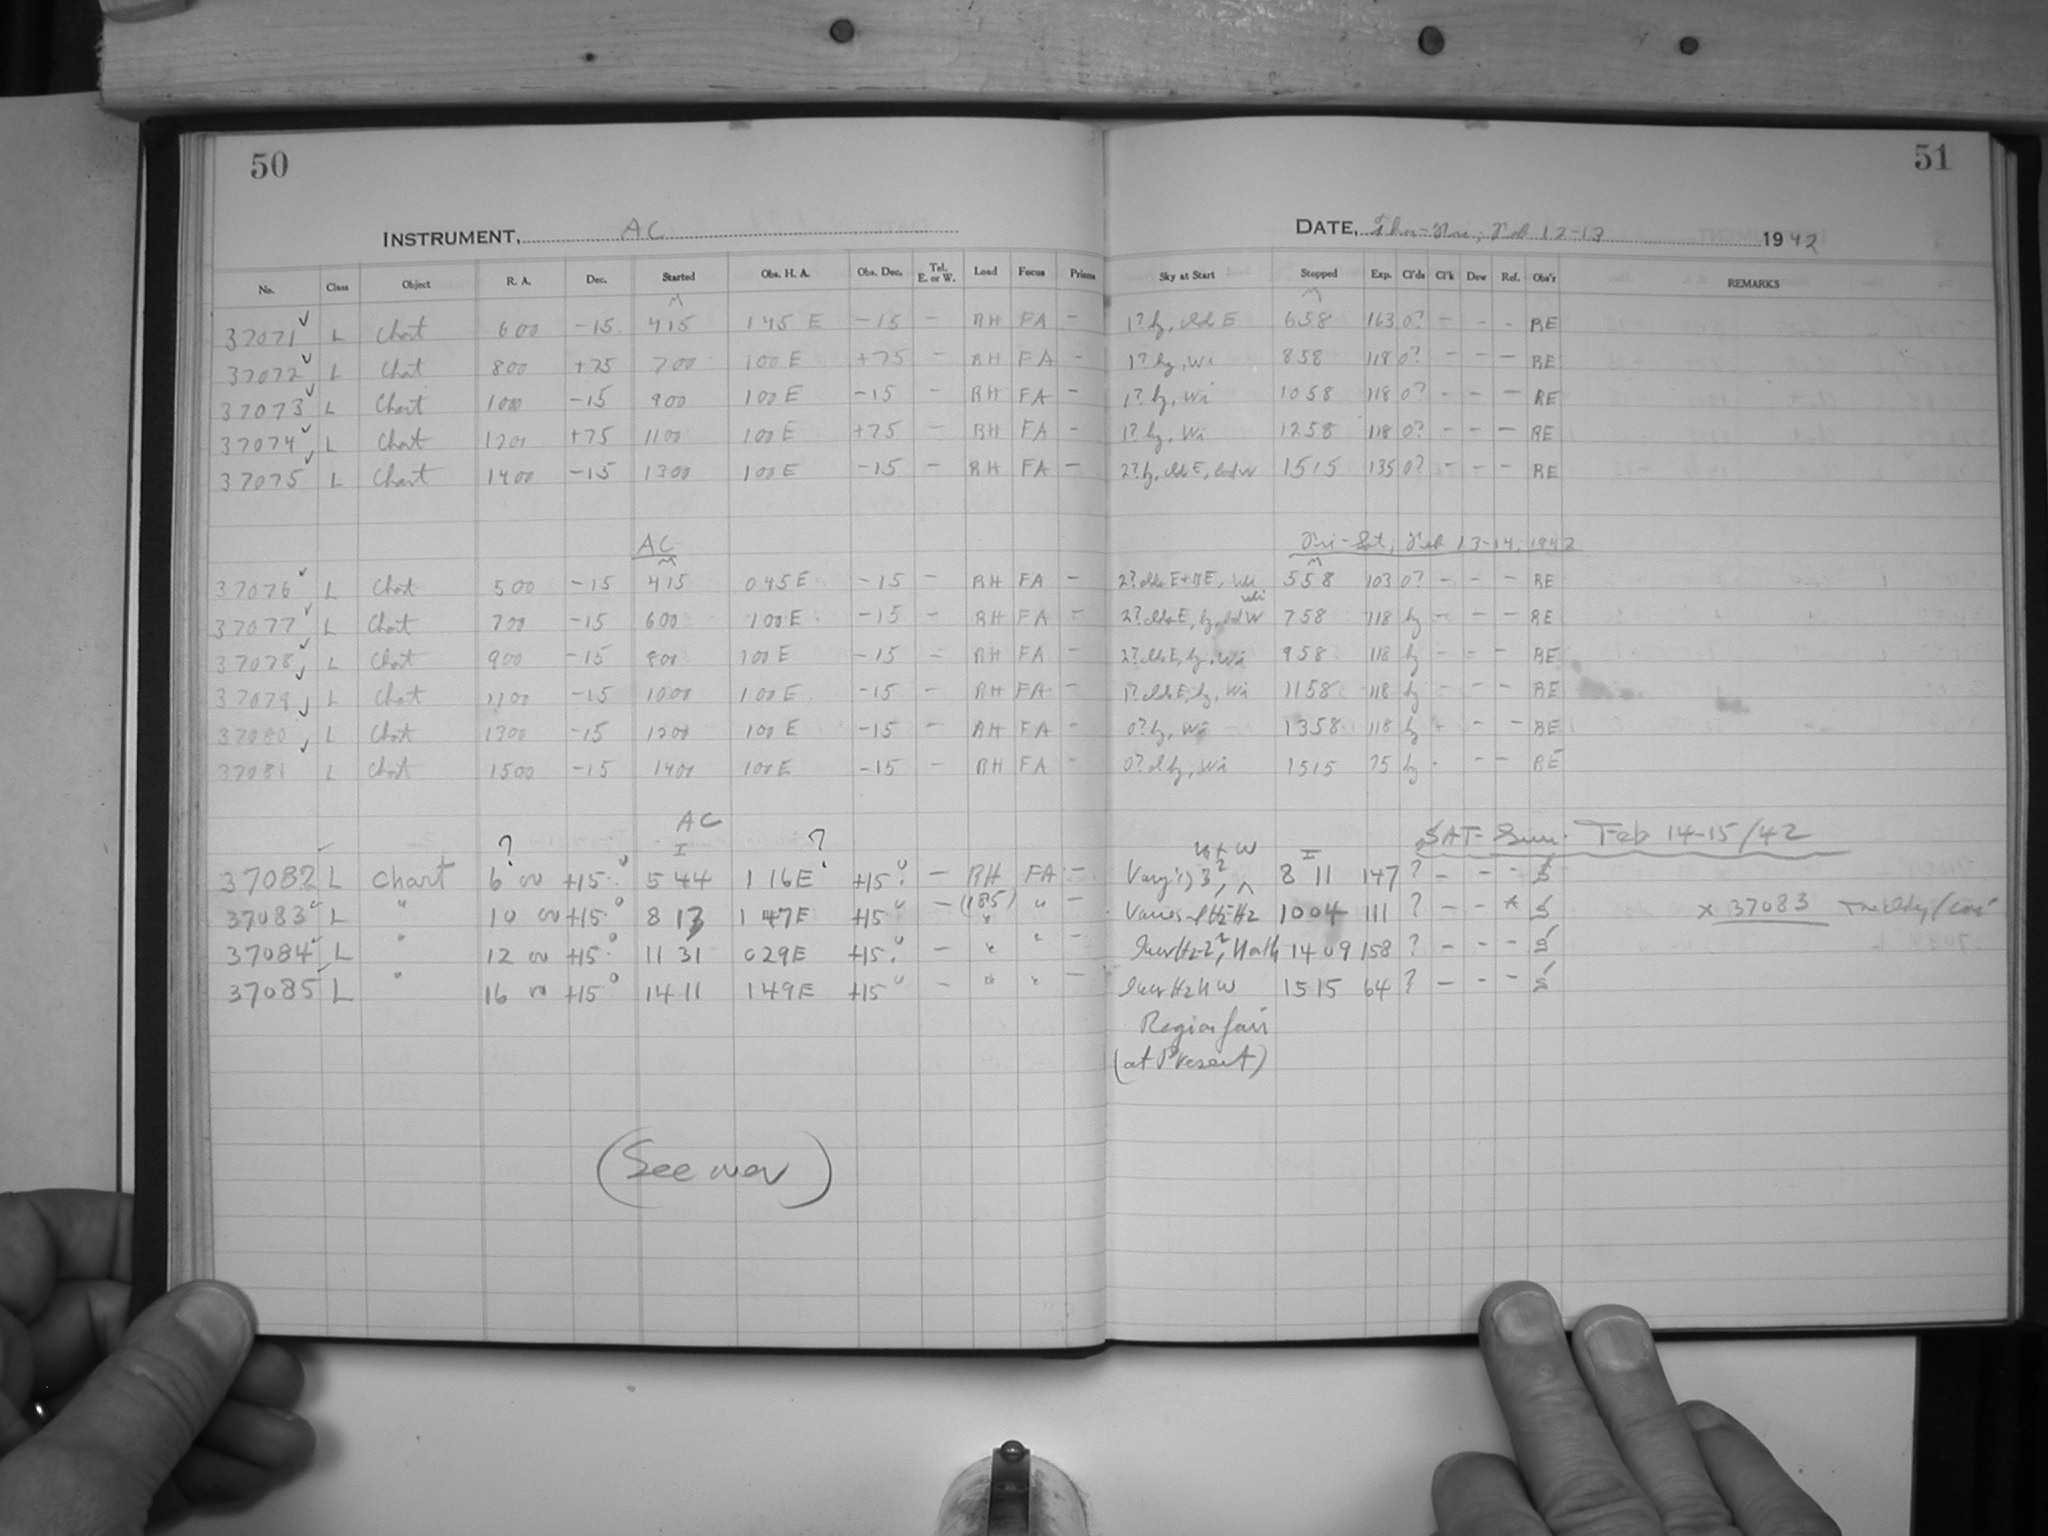 50
51
INSTRUMENT, AC
DATE, Feb 12-13 1942
No. Class Object R. A. Dec. Started Obs. H. A. Obs. Dec. Tel. E. or W. Load Focus Prisms Sky at Start Stopped Exp. Cl'ds Cl'k Dew Ref. Obs'r REMARKS
37071 L Chart 6 00 -15 4 15 1 45 E -15 - RH FA - 1? hz, clds E 6 58 163 0? - - - RE
37072 L Chart 8 00 +75 7 00 1 00 E +75 - RH FA - 1? hz, Wi 8 58 118 0? - - - RE
37073 L Chart 10 00 -15 9 00 1 00 E -15 - RH FA - 1? hz, Wi 10 58 118 0? - - - RE
37074 L Chart 12 00 +75 11 00 1 00 E +75 - RH FA - 1? hz, Wi 12 58 118 0? - - - RE
37075 L Chart 14 00 -15 13 00 1 00 E -15 - RH FA - 2? hz, clds E, W 15 15 135 0? - - - RE
AC Fri-Sat, Feb 13-14, 1942
37076 L Chart 5 00 -15 4 15 0 45 E -15 - RH FA - 2? clds E+NE, 5 58 103 0? - - - RE
37077 L Chart 7 00 -15 6 00 1 00 E -15 - RH FA - 2? clds E, hz, W 7 58 118 hz - - - RE
37078 L Chart 9 00 -15 8 00 1 00 E -15 - RH FA - 2? clds E, hz, Wi 9 58 118 hz - - - RE
37079 L Chart 11 00 -15 10 00 1 00 E -15 - RH FA - 1? clds E, hz, Wi 11 58 118 hz - - - RE
37080 L Chart 13 00 -15 12 00 1 00 E -15 - RH FA - 0? hz, Wi 13 58 118 hz - - - RE
37081 L Chart 15 00 -15 14 00 1 00 E -15 - RH FA - 0? hz, Wi 15 15 75 hz - - - RE
AC SAT-Sun. Feb 14-15/42
? I ? I
37082 L Chart 6 00 +15° 5 44 1 16 E +15° - RH FA - 8 11 147 ? - - - S
37083 L " 10 00 +15° 8 13 1 47 E +15° - (185) " " - Varies 10 04 111 ? - - * S x 37083
37084 L " 12 00 +15° 11 31 0 29 E +15° - " " - 14 09 158 ? - - - S
37085 L " 16 00 +15° 14 11 1 49 E +15° - " " - 15 15 64 ? - - - S
Region fair
(at Present)
(See over)